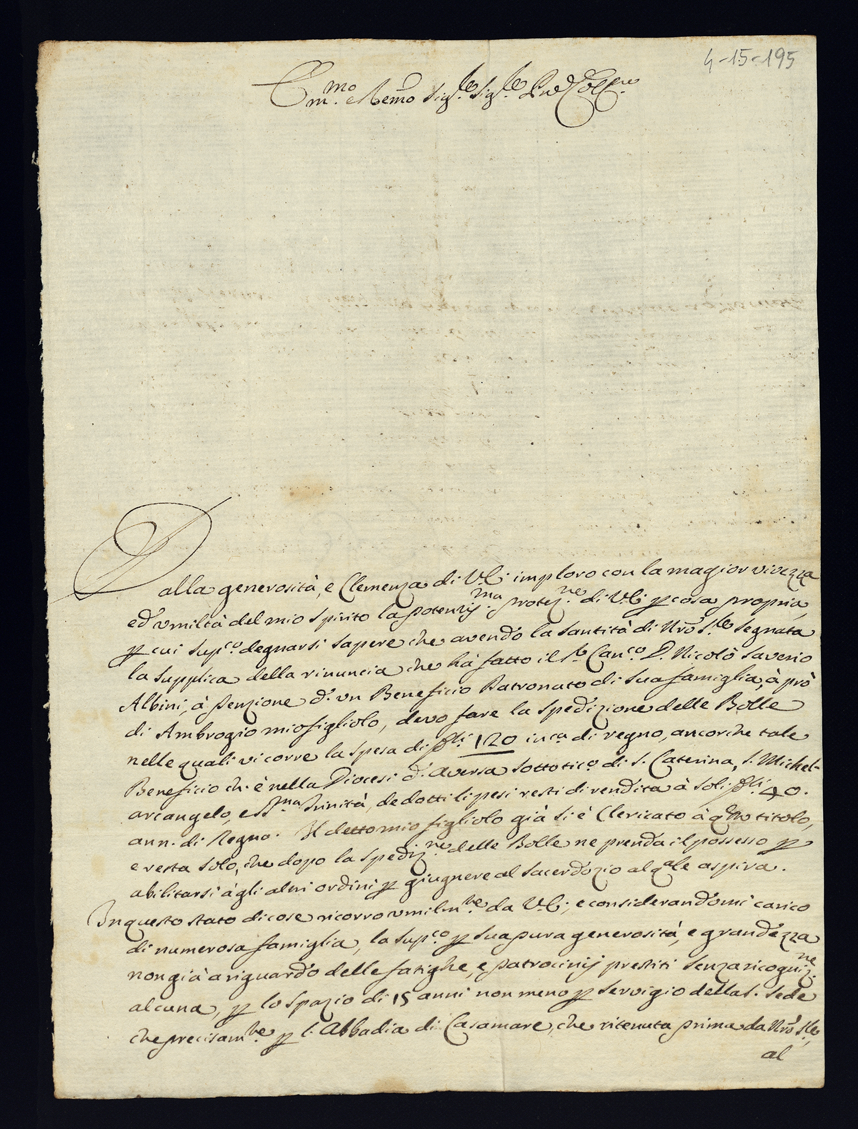 4-15-195
E.mmo e R.emo Sig.re Sig.re P.ne Col.mo
Dalla generosità, e Clemenza di V.E. imploro con la magior vivezza
ed' umiltà del mio spirito la potentis.ma protez.ne di V.E. p cosa propria,
p cui sup.co degnarsi sapere che avendo la Santità di Nro S.re segnata
la supplica della rinuncia che hà fatto il S.r Can.co D. Nicolò Saverio
Albini, à penzione d' un Beneficio Patronato di sua famiglia, à prò
di Ambrogio mio figliolo, devo fare la spedizione delle Bolle
nelle quali vi corre la spesa di d.ti 120 in c.a di regno, ancorche tale
Beneficio ch' è nella Diocesi d' Aversa sotto tit.o di S. Caterina, S. Michel-
arcangelo, e SS.ma Trinità, dedotti li pesi resti di rendita à soli d.ti 40.
ann. di Regno. Il detto mio figliolo già si è Clericato à q.sto titolo,
e resta solo, che dopo la spediz.ne delle Bolle ne prenda il possesso p
abilitarsi à gli altri ordini p giugnere al sacerdozio al q.ale aspira.
In questo stato di cose ricorro umilm.te da V.E., e considerandomi carico
di numerosa famiglia, la sup.co p sua pura generosità, e grandezza
non già a riguardo delle fatighe, e patrocinij prestiti senza ricogniz.ne
alcuna, p lo spazio di 15 anni non meno p servigio della S. Sede
che precisam.te p l' Abbadia di Casamare, che ritenuta prima da Nro S.re,
al